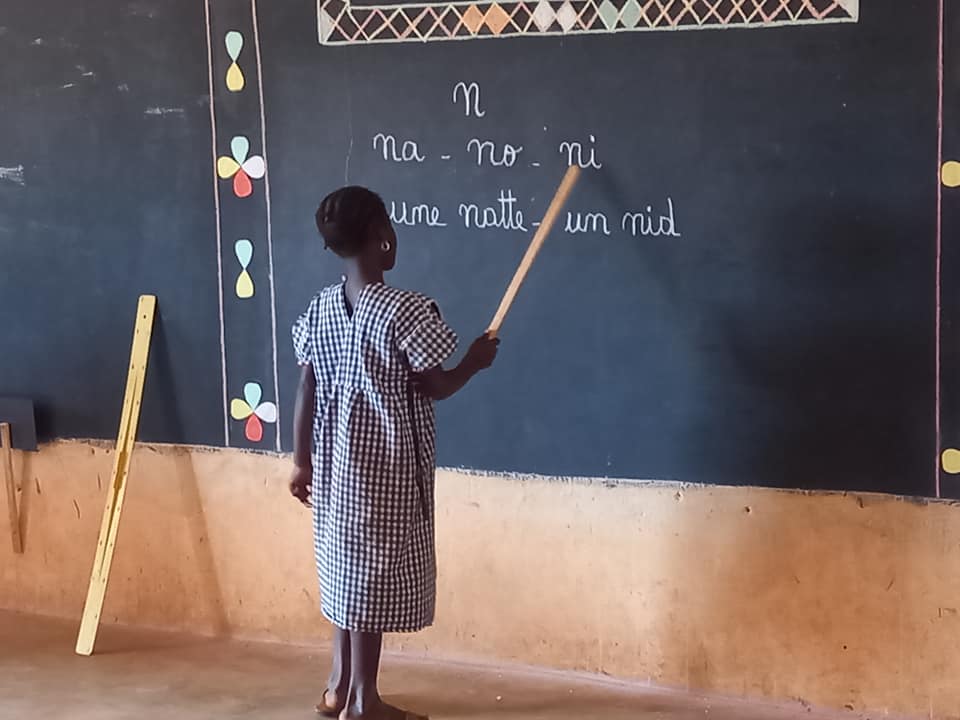 n
na - no - ni
une natte - un nid